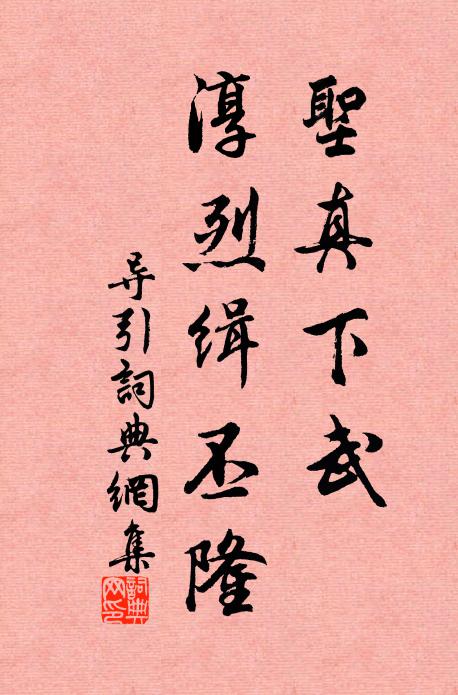 聖真下武
淳烈缉丕隆
导引詞典網集
詞典
网印